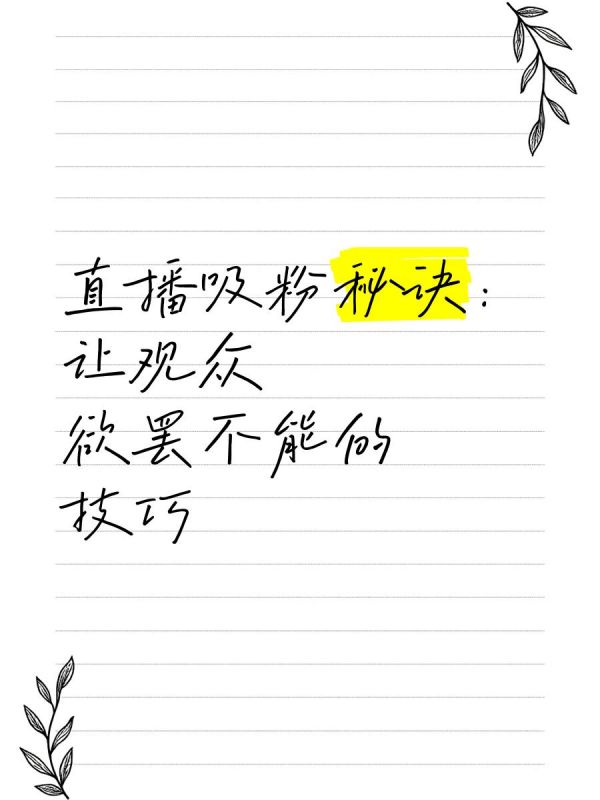 直播吸粉秘诀：
让观众
欲罢不能的
技巧